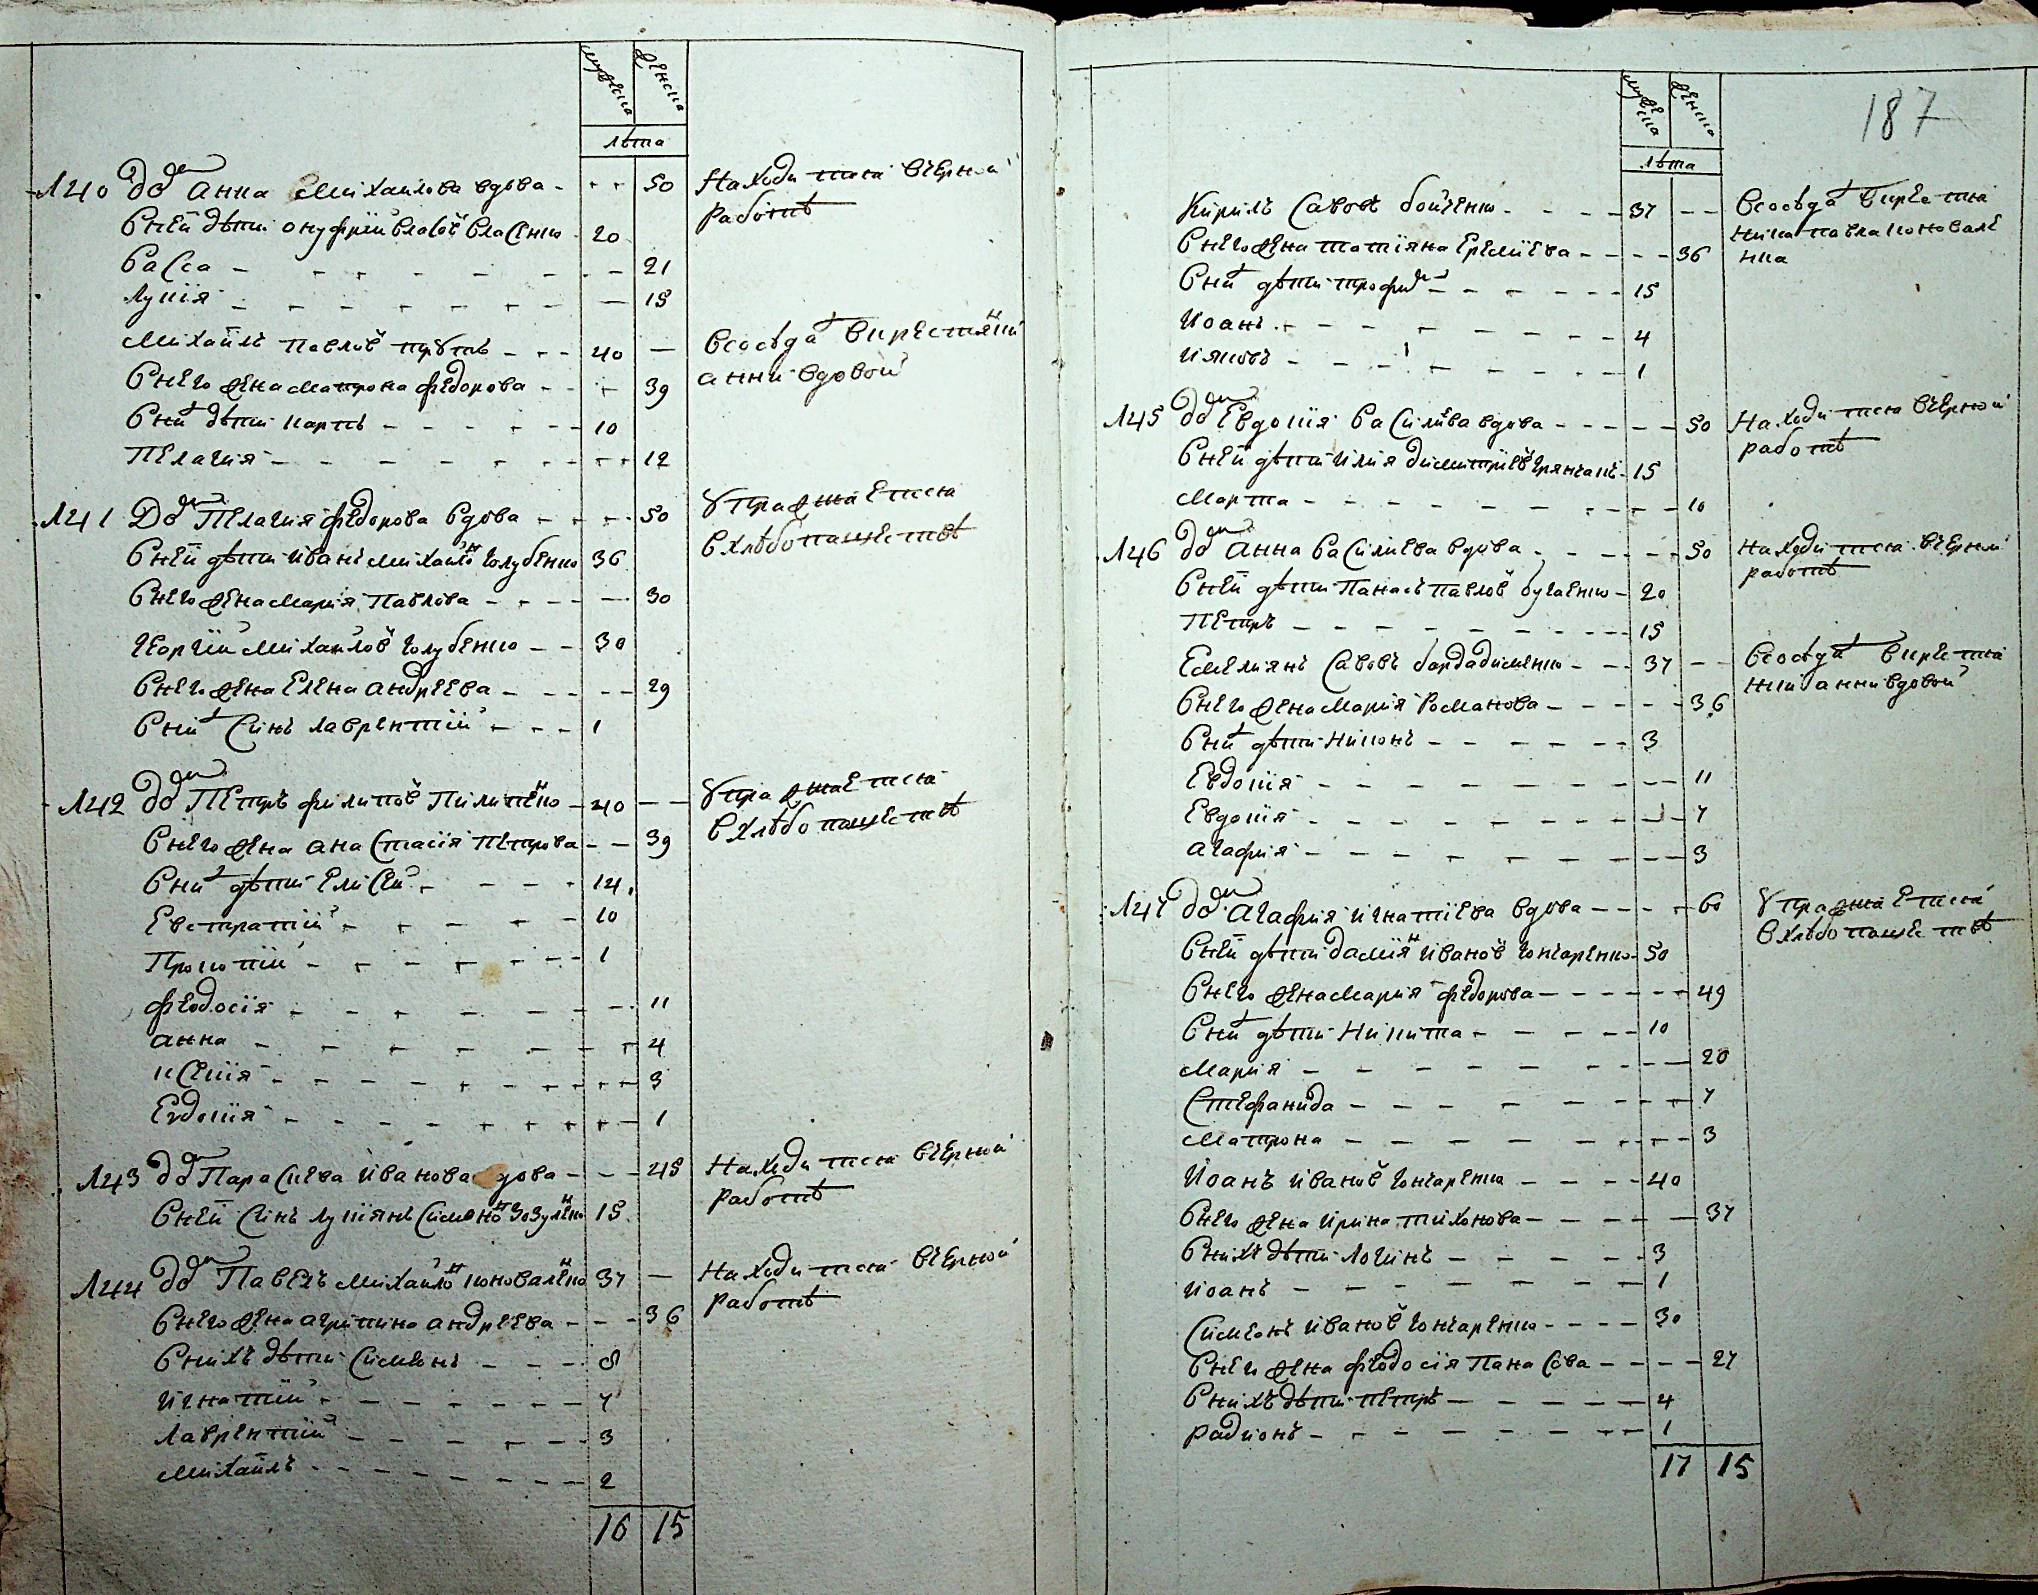 мужеска женска
лѣта
140 до͏м Анна Михайлова вдова - - - 50 Находитса вчерной
работѣ
Внеи дѣти Онуфрій Власов Власенко 20
Васса - - - 21
Лукія - - - 15
Михайлъ Павлов Прутъ - - - 40 — Всосѣда вкрестянки
Анни вдовой
Внего жена Матрона Федорова - - - 39
Вних дѣти Карпъ - - - 10
Пелагия - - - 12
141 До͏м Пелагия Федорова вдова - - - 50 Упражнаетса
вхлѣбопашествѣ
Внеи дѣти Иванъ Михайлов Голубенко 36
Внего жена Мария Павлова - - - 30
Георгий Михайлов Голубенко - - 30
Внего жена Елена Андреева - - - 29
Вних синъ Лаврентий - - - 1
142 до͏м Петръ Филипов Пилипенко - 40 — Упражнаетса
вхлѣбопашествѣ
Внего жена Анастасія Петрова - - 39
Вних дѣти Елисей - - - 14
Евстратий - - - 10
Прокопій - - - 1
Феодосія - - - 11
Анна - - - 4
Ксенія - - - 3
Евдокія - - - 1
143 до͏м Параскева Иванова вдова - - - 45 Находитса вчерной
работѣ
Внеи синъ Лукіянъ Сименов Зозуленко 15
144 до͏м Павелъ Михайлов Коноваленко 37 — Находитса вчерной
работѣ
Внего жена Агрипина Андреева - - - 36
Внихъ дѣти Сименъ - - - 8
Игнатий - - - 7
Лаврентий - - - 3
Михайлъ - - - 2
16 15
187
мужеска женска
лѣта
Кирилъ Савовъ Бойченко - - - 37 - - Всосѣда вкрестянина Павла Коноваленка
Внего жена Татіяна Еремѣева - - - 36
Вних дѣти Трофим - - - 15
Иоанъ - - - 4
Ияковъ - - - 1
145 до͏м Евдокія Василиева вдова - - - 50 Находитса вчерной
работѣ
Внеи дѣти Илия Димитріев - 15
Марта - - - 10
146 до͏м Анна Василиева вдова - - - 50 Находитса вчерной
работѣ
Внеи дѣти Панасъ Павлов - 20
Петръ - - - 15
Емелиянъ Савовъ Бардадименко - - 37 - - Всосѣда вкрестянки Анни вдовой
Внего жена Мария Романова - - - 36
Вних дѣти Никонъ - - - 3
Евдокія - - - 11
Евдокія - - - 7
Агафия - - - 3
147 до͏м Агафия Игнатиева вдова - - - 60 Упражнаетса
вхлѣбопашествѣ
Внеи дѣти Даміян Иванов Гончаренко - 50
Внего жена Мария Федорова - - - 49
Вних дѣти Никита - - - 10
Мария - - - 20
Стефанида - - - 7
Матрона - - - 3
Иоанъ Иванов Гончаренко - - - 40
Внего жена Ирина Тихонова - - - 37
Внихъ дѣти Логинъ - - - 3
Иоанъ - - - 1
Сименъ Иванов Гончаренко - - - 30
Внего жена Феодосія Панасова - - - 27
Внихъ дѣти Петръ - - - 4
Радионъ - - - 1
17 15